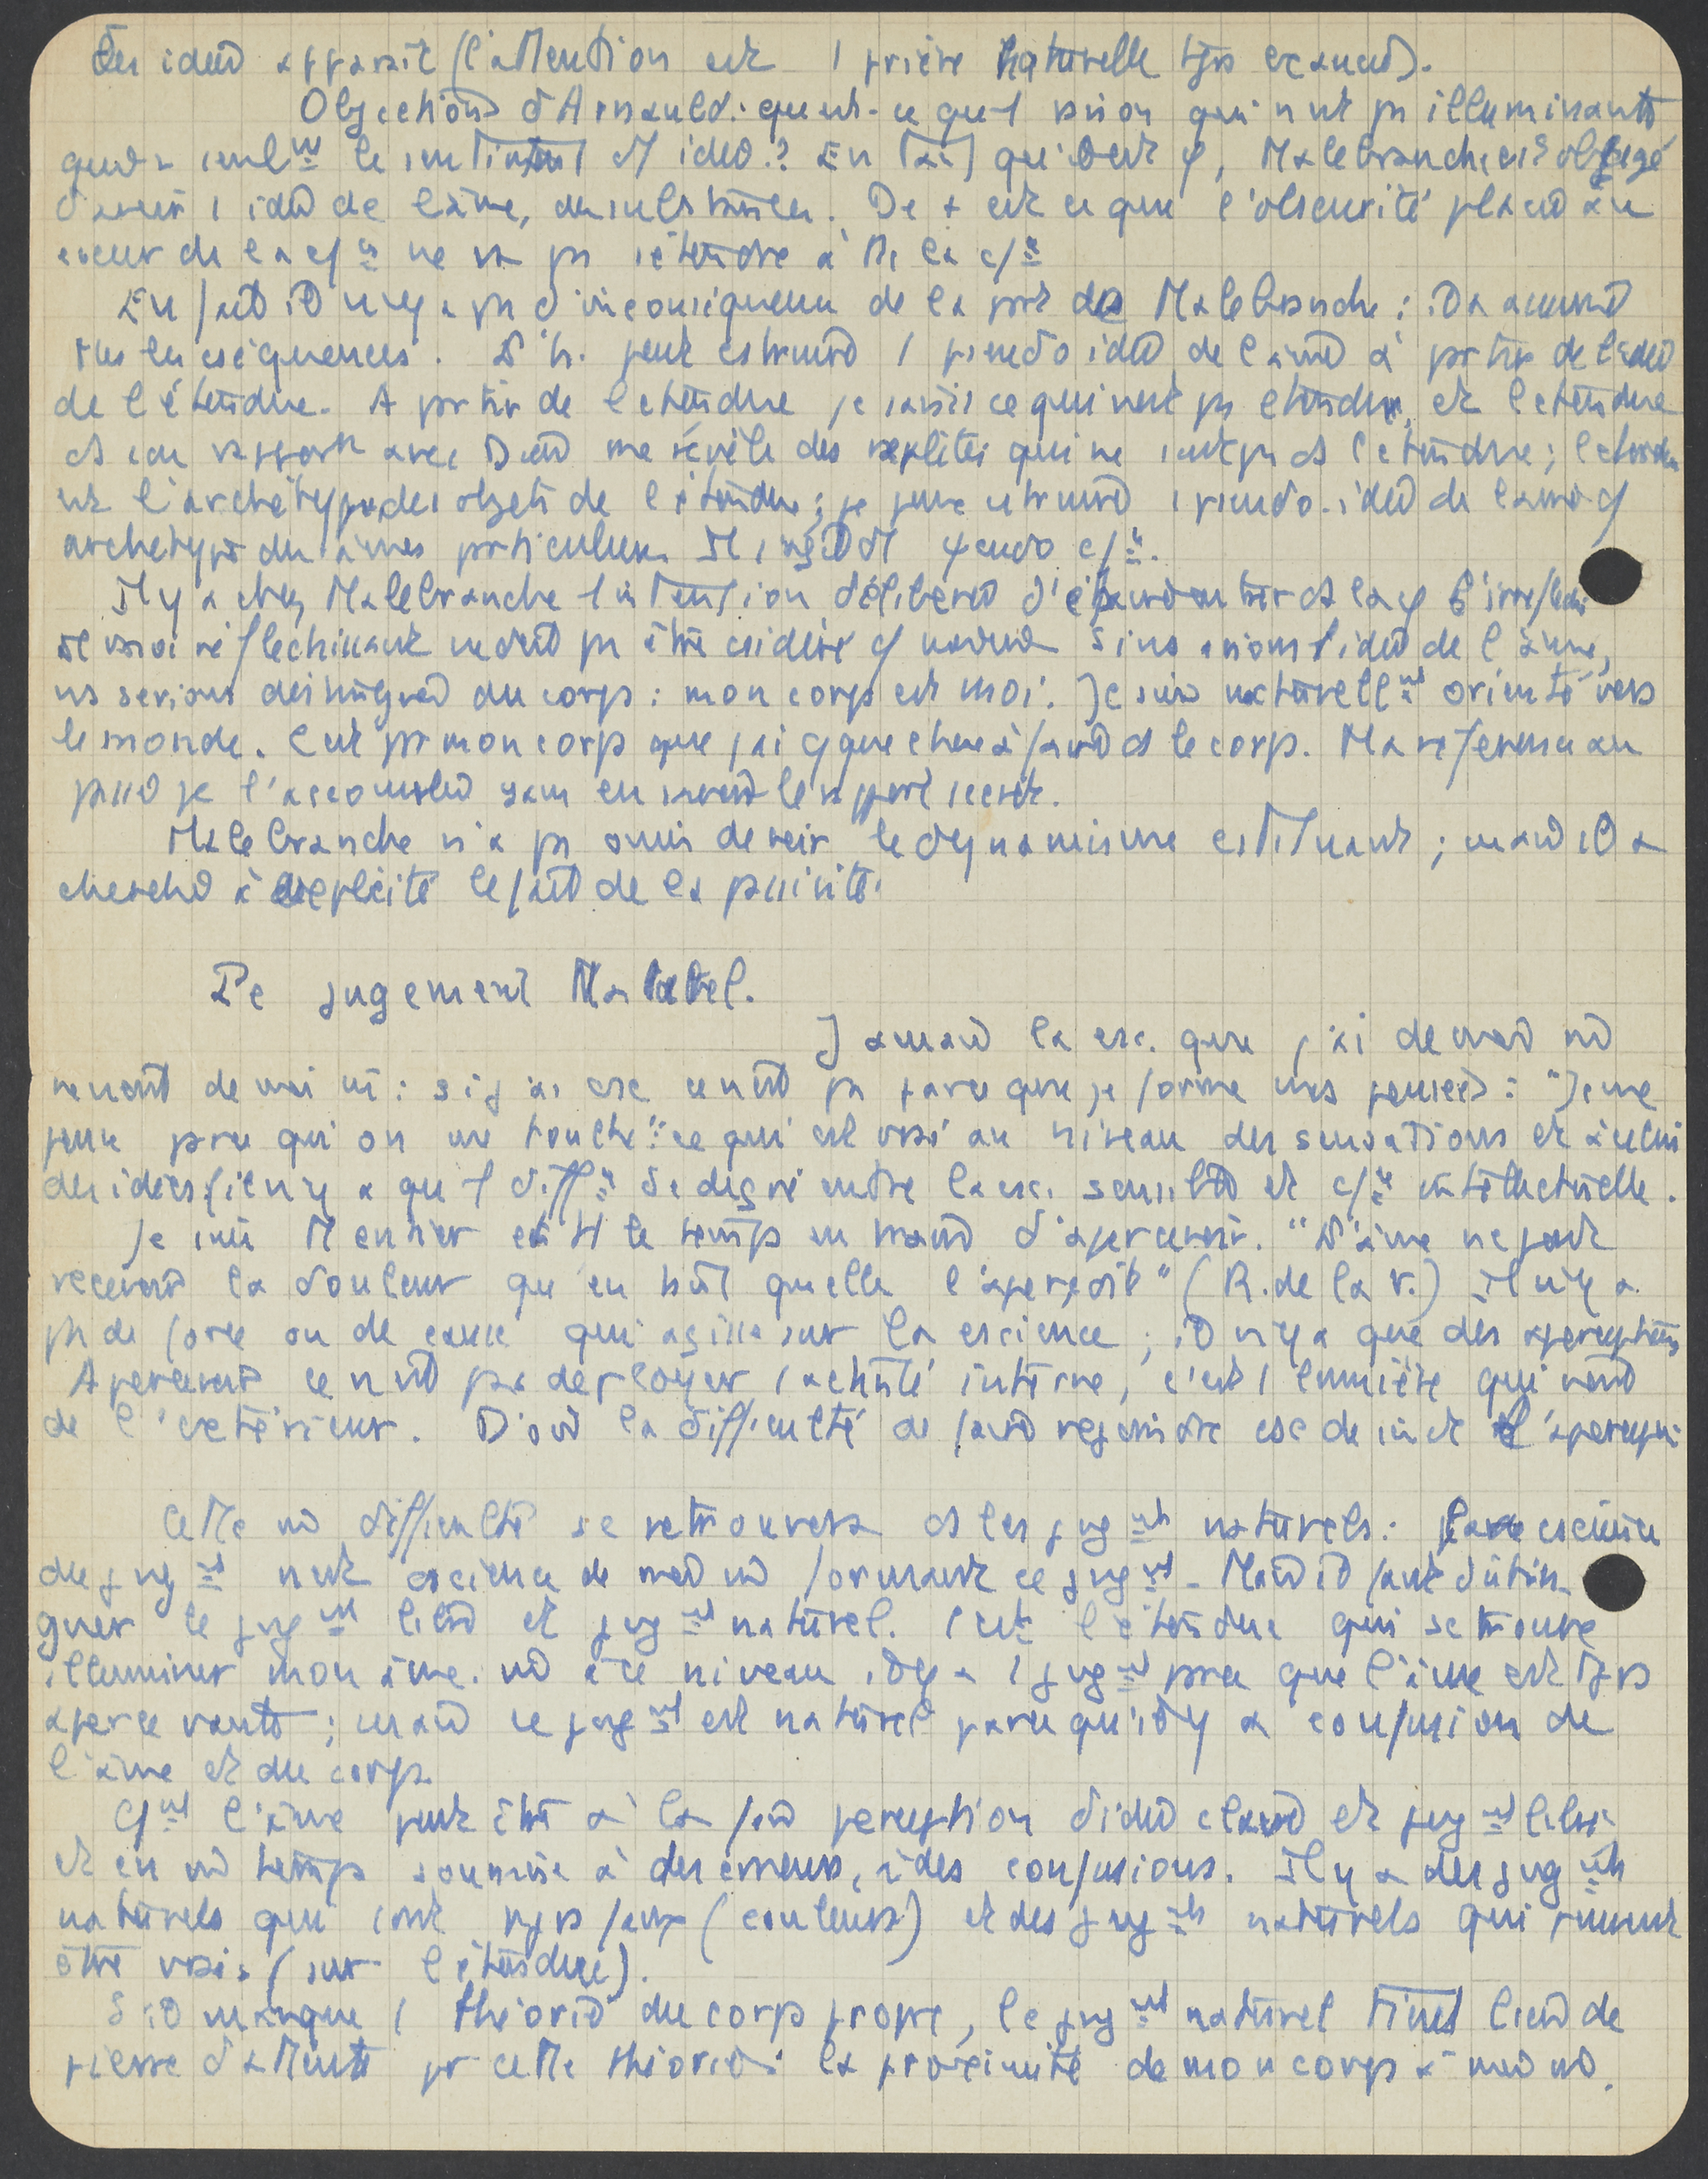 des idées apparaît (l'attention est 1 prière naturelle tjrs exaucée).
Objections d'Arnauld : qu'est-ce qu'1 vision qui n'est ps illuminante
qui a seulmt le sentiment d'idée ? En tant que φ, Malebranche est obligé
d'avoir 1 idée de l'âme, des substances. De + est ce que l'obscurité placée au
coeur de la cse ne va ps s'étendre à tte la cse
En fait il n'y a ps d'inconséquence de la part de Malebranche ; il a assumé
ttes les cséquences. L'h. peut cstruire 1 pseudo idée de l'âme à partir de l'idée
de l'étendue. A partir de l'étendue je saisis ce qui n'est ps étendu, et l'étendue
ds son rapport avec Dieu me révèle des réalités qui ne sont ps ds l'étendue ; l'étendue
est l'archétype des objets de l'étendue ; je peux cstruire 1 pseudo-idée de l'âme cs
archétype des âmes particulières. Il s'agit d'1 pseudo cse.
Il y a chez Malebranche 1 intention délibérée d' ds la φ l'irréfléchi
le moi réfléchissant ne doit ps être csidéré cs Si ns avions 1 idée de l'âme,
ns serions désintégrés du corps : mon corps est moi. Je suis naturellmt orienté vers
le monde. C'est par mon corps que j'ai qque chose à faire ds le corps. Ma référence au
passé je l'accomplis sans en avoir le rapport secret.
Malebranche n'a ps omis de voir le dynamisme cstituant ; mais il a
cherché à expliciter le fait de la passivité.
Le jugement Naturel.
Jamais la csc. que j'ai de moi ne
vient de moi m̂ : si j'ai csc ce n'est ps parce que je forme mes pensées : "Je ne
pense que parce qu'on me touche" ; ce qui est vrai au niveau des sensations et à celui
des idées (il n'y a qu'1 diffce de degré entre la csc. sensible et cse intellectuelle.
Je suis et tt le temps en train d'apercevoir. "L'âme ne peut
recevoir la douleur qu'en tant qu'elle l'aperçoit" (R. de la V.) Il n'y a
ps de force ou de cause qui agisse sur la cscience ; il n'y a que des aperceptions
Apercevoir ce n'est ps déployer 1 activité interne, c'est 1 lumière qui vient
de l'extérieur. D'où la difficulté de faire rejoindre csc de soi et l'aperception
Cette m̂ difficulté se retrouvera ds les jugmts naturels : la cscience
du jugmt n'est cscience de moi m̂ formant ce jugmt. Mais il faut distin-
guer le jugmt libre et jugmt naturel. C'est l'étendue qui se trouve
illuminer mon âme. m̂ à ce niveau il y a 1 jugmt parce que l'âme est tjrs
apercevante ; mais ce jugmt est naturel parce qu'il y a confusion de
l'âme et du corps.
Cmt l'âme peut être à la fois perception d'idée claire et jugmt libre
et en m̂ temps soumise à des erreurs, à des confusions. Il y a des jugmts
naturels qui sont tjrs faux (couleurs) et des jugmts naturels qui peuvent
être vrais (sur l'étendue).
S'il manque 1 théorie du corps propre, le jugmt naturel tient lieu de
pierre d'attente pr cette théorie : la proximité de mon corps à moi m̂.